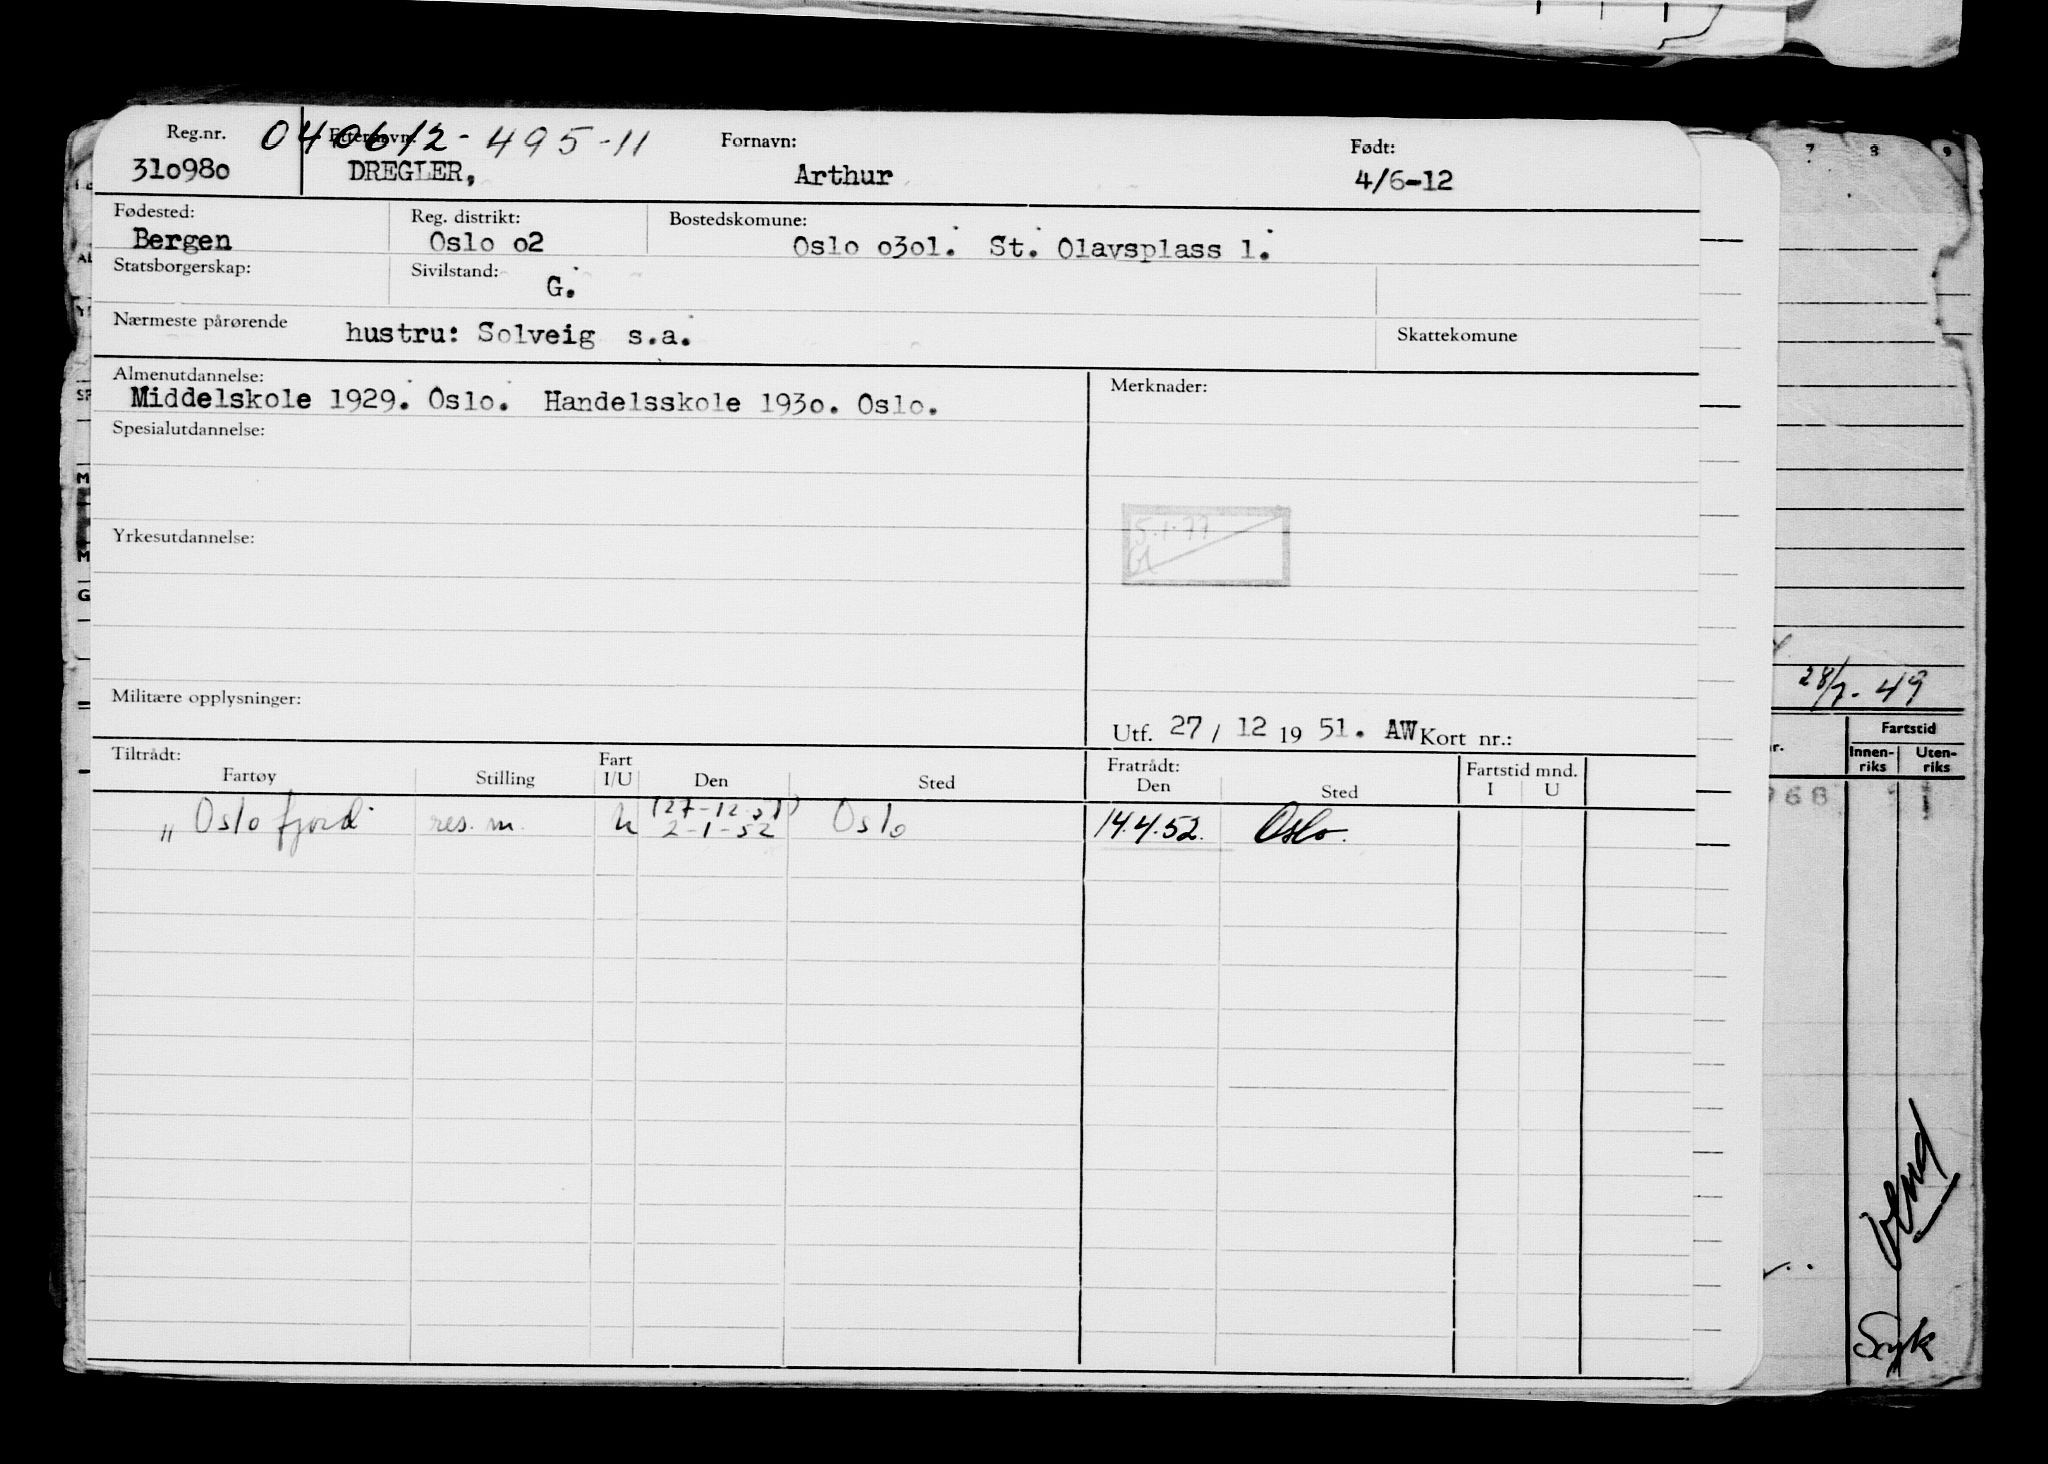 Reg.nr. 040612-495-11 Etternavn: Fornavn: Født:
31o98o DREGLER, Arthur 4/6-12
Fødested: Reg. distrikt: Bostedskomune:
Bergen Oslo o2 Oslo o3o1. St. Olavsplass 1.
Statsborgerskap: Sivilstand: G.
Nærmeste pårørende hustru: Solveig s.a. Skattekomune
Almenutdannelse: Merknader:
Middelskole 1929. Oslo. Handelsskole 193o. Oslo.
Spesialutdannelse:
5.1.77
Yrkesutdannelse:
Militære opplysninger:
Utf. 27 / 12 19 51. AW Kort nr.:
Tiltrådt: Fart Fratrådt: Fartstid mnd.
Fartøy Stilling I/U Den Sted Den Sted I U
(27-12-51)
" Oslofjord res. m. U 2-1-52 Oslo 14.4.52. Oslo.
7 8 9
28/7-49
Fartstid
Innen-riks Uten-riks
968
Sryk